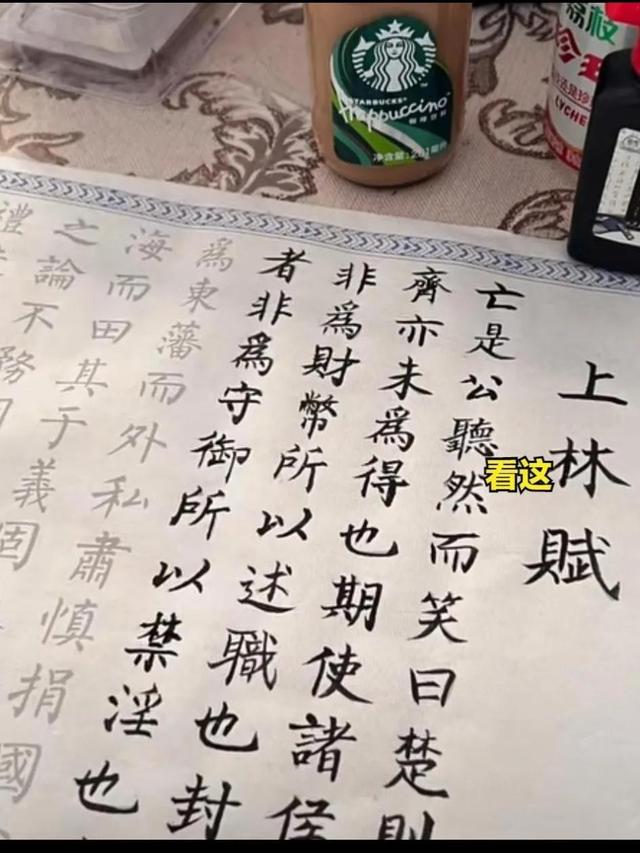 STARBUCKS
Frappuccino
咖啡饮料
净含量:281毫升
荔枝
LYCHE
上林賦
亡是公聽然而笑曰楚則
齊亦未爲得也期使諸侯
非爲財幣所以述職也封
者非爲守御所以禁淫也
爲東藩而外私肅慎捐國
海而田其于義固
之論不務
禮
看这